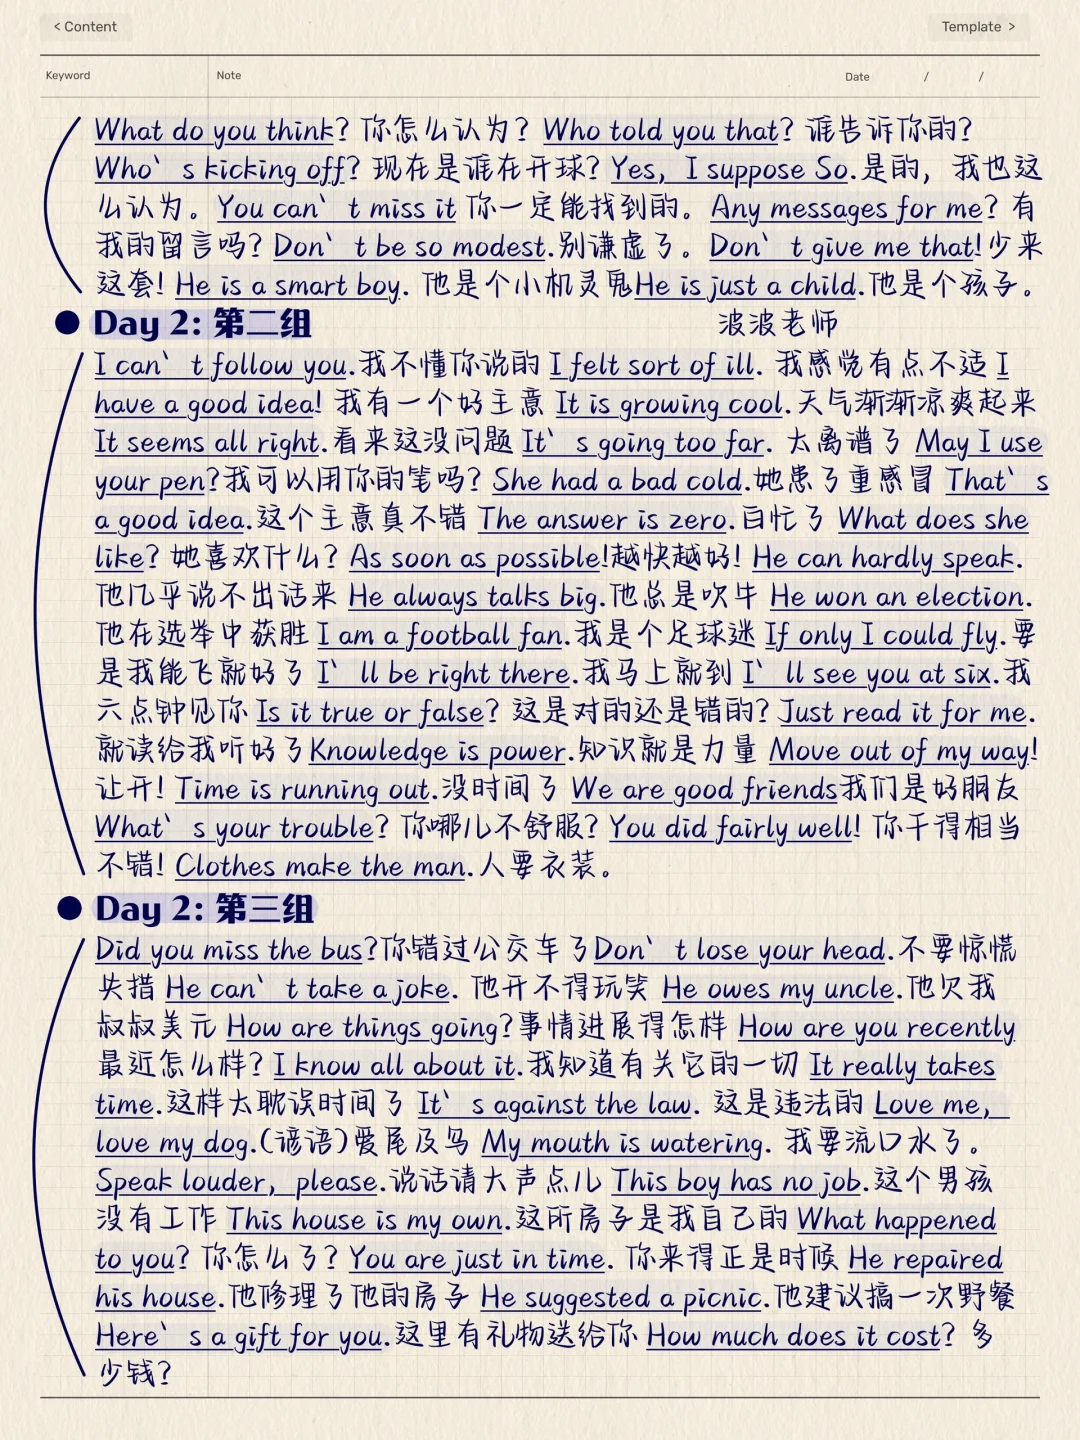 < Content
Template >
Keyword
Note
Date / /
What do you think? 你怎么认为? Who told you that? 谁告诉你的?
Who's kicking off? 现在是谁在开球? Yes, I suppose So.是的, 我也这
么认为。You can't miss it 你一定能找到的。Any messages for me? 有
我的留言吗? Don't be so modest.别谦虚了。Don't give me that!少来
这套! He is a smart boy. 他是个小机灵鬼He is just a child.他是个孩子。
● Day 2: 第二组
波波老师
I can't follow you.我不懂你说的 I felt sort of ill. 我感觉有点不适 I
have a good idea! 我有一个好主意 It is growing cool.天气渐渐凉爽起来
It seems all right.看来这没问题 It's going too far. 太离谱了 May I use
your pen?我可以用你的笔吗? She had a bad cold.她患了重感冒 That's
a good idea.这个主意真不错 The answer is zero.白忙了 What does she
like? 她喜欢什么? As soon as possible!越快越好! He can hardly speak.
他几乎说不出话来 He always talks big.他总是吹牛 He won an election.
他在选举中获胜 I am a football fan.我是个足球迷 If only I could fly.要
是我能飞就好了 I'll be right there.我马上就到 I'll see you at six.我
六点钟见你 Is it true or false? 这是对的还是错的? Just read it for me.
就读给我听好了Knowledge is power.知识就是力量 Move out of my way!
让开! Time is running out.没时间了 We are good friends我们是好朋友
What's your trouble? 你哪儿不舒服? You did fairly well! 你干得相当
不错! Clothes make the man.人要衣装。
● Day 2: 第三组
Did you miss the bus?你错过公交车了Don't lose your head.不要惊慌
失措 He can't take a joke. 他开不得玩笑 He owes my uncle.他欠我
叔叔美元 How are things going?事情进展得怎样 How are you recently
最近怎么样? I know all about it.我知道有关它的一切 It really takes
time.这样太耽误时间了 It's against the law. 这是违法的 Love me,
love my dog.(谚语)爱屋及乌 My mouth is watering. 我要流口水了。
Speak louder, please.说话请大声点儿 This boy has no job.这个男孩
没有工作 This house is my own.这所房子是我自己的 What happened
to you? 你怎么了? You are just in time. 你来得正是时候 He repaired
his house.他修理了他的房子 He suggested a picnic.他建议搞一次野餐
Here's a gift for you.这里有礼物送给你 How much does it cost? 多
少钱?